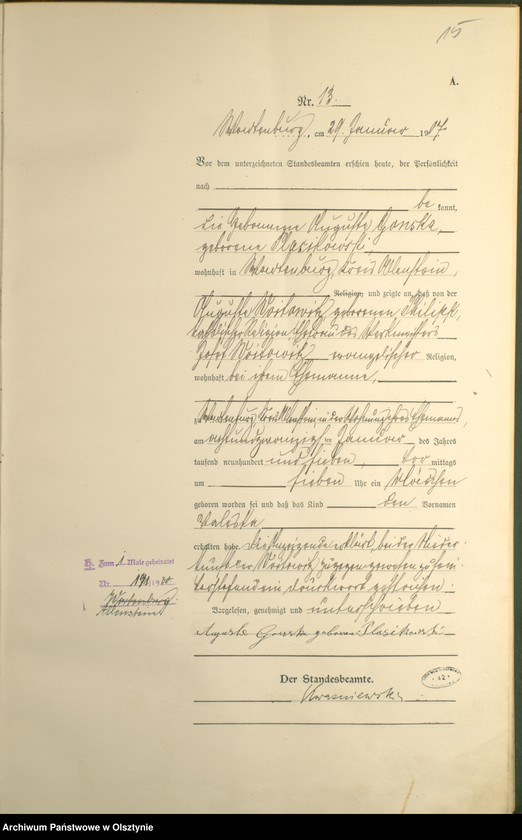 15
A.
Nr. 13.
Wartenburg, am 29. Januar 1907
Vor dem unterzeichneten Standesbeamten erschien heute, der Persönlichkeit
nach
be kannt,
die Hebamme Auguste Gonska,
geborene Plasikowski
wohnhaft in Wartenburg, Kreis Allenstein,
Religion, und zeigte an, daß von der
Auguste geborenen
katholischer Religion, Ehefrau des Werkmeisters
Josef evangelischer Religion,
wohnhaft bei ihrem Ehemanne,
zu Wartenburg, Kreis Allenstein in der Wohnung ihres Ehemannes,
am achtundzwanzigsten Januar des Jahres
tausend neunhundert und sieben, vor mittags
um sieben Uhr ein Mädchen
geboren worden sei und daß das Kind den Vornamen
Valeska
erhalten habe. Die Anzeigende erklärt, bei der Nieder-
kunft der zugegen gewesen zu sein.
Vorgelesen, genehmigt und unterschrieben
Auguste Gonska geborene Plasikowski
Der Standesbeamte.
Kwasniewski
H. Zum 1 Male geheiratet
Nr. 19
Wartenburg
Allenstein
Archiwum Państwowe w Olsztynie